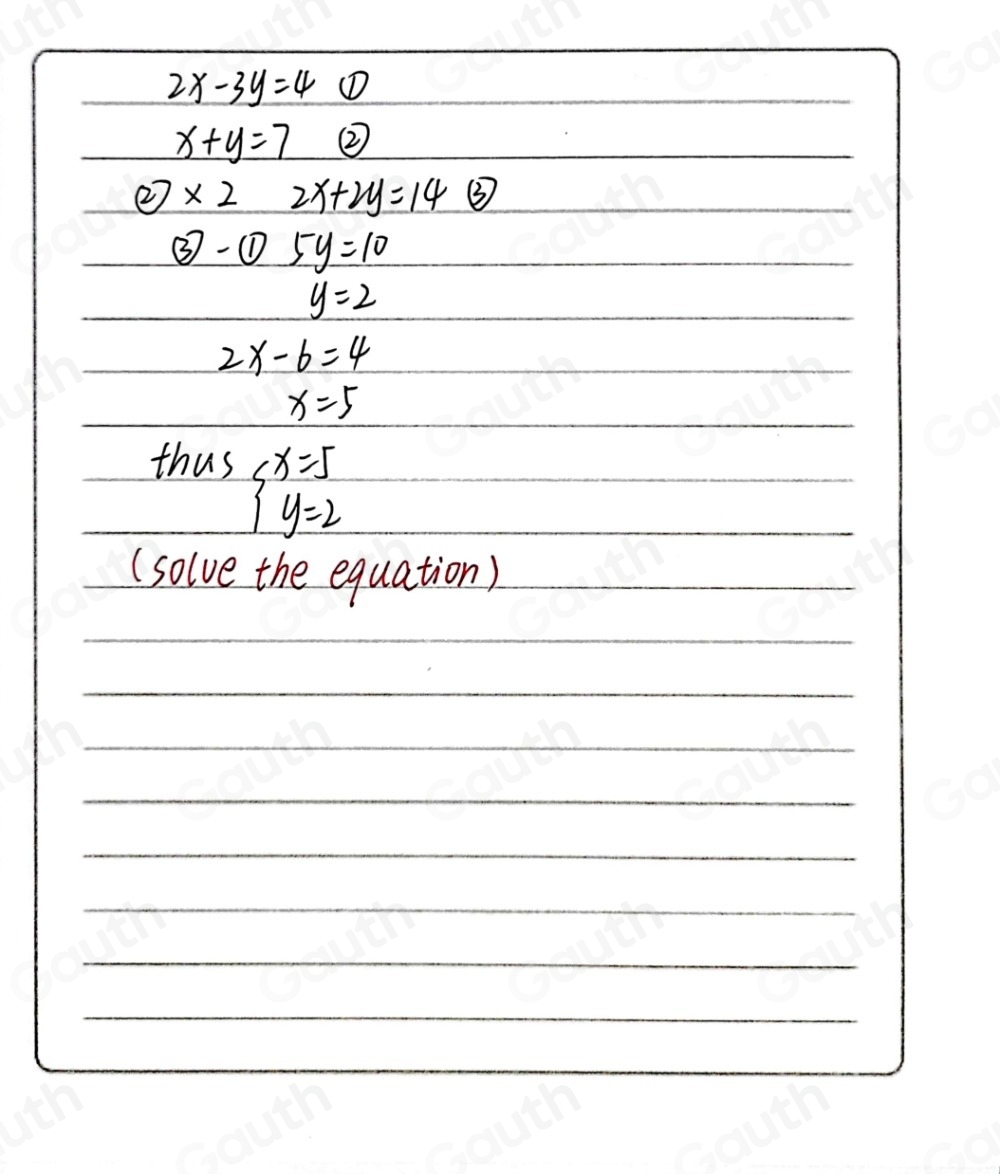 2x-3y=4 ①
x+y=7 ②
②×2 2x+2y=14 ③
③-① 5y=10
y=2
2x-6=4
x=5
thus {x=5
y=2
(solve the equation)